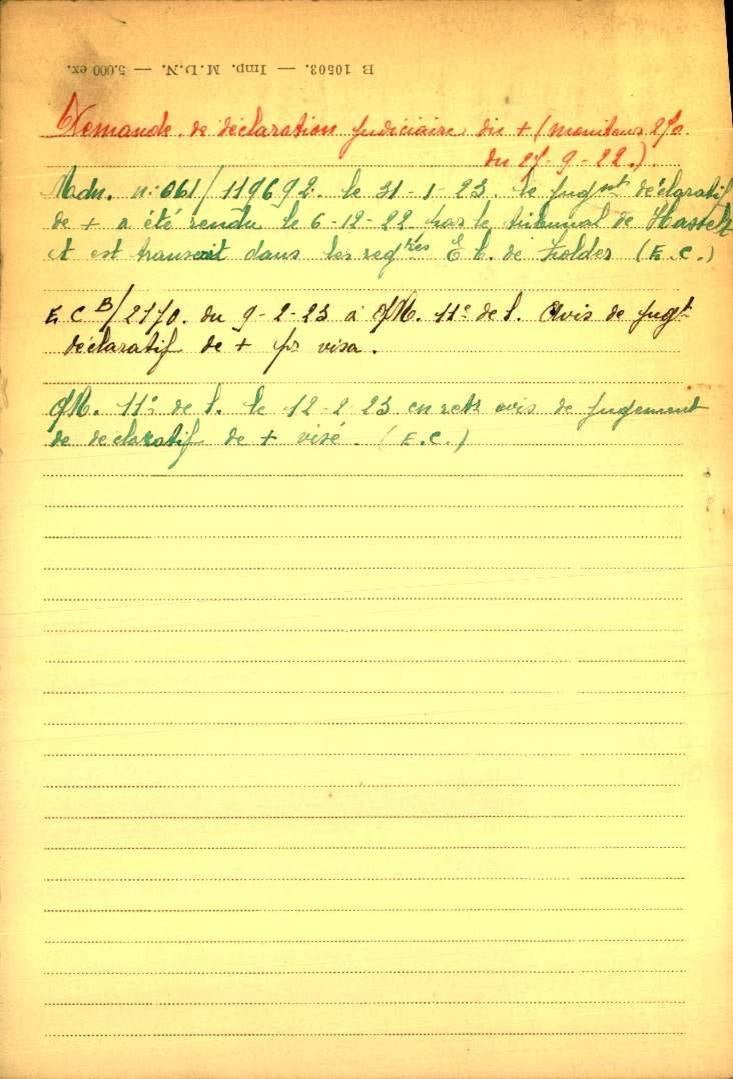 B 10503. — Imp. M.D.N. — 5.000 ex.
Demande de déclaration judiciaire du + (moniteur 270
du 27-9-22.)
Mdn. n: 061/119692. le 31-1-23. le jugmt déclaratif
de + a été rendu le 6-12-22 par le tribunal de Hasselt
et est transcrit dans les regtres E C. de Zolder (E.C.)
E C B/2170. du 9-2-23 à 11e de l. Avis de jugt
déclaratif de + pr visa.
11e de l. le 12-2-23 en retr avis de jugement
de déclaratif de + visé. (E.C.)